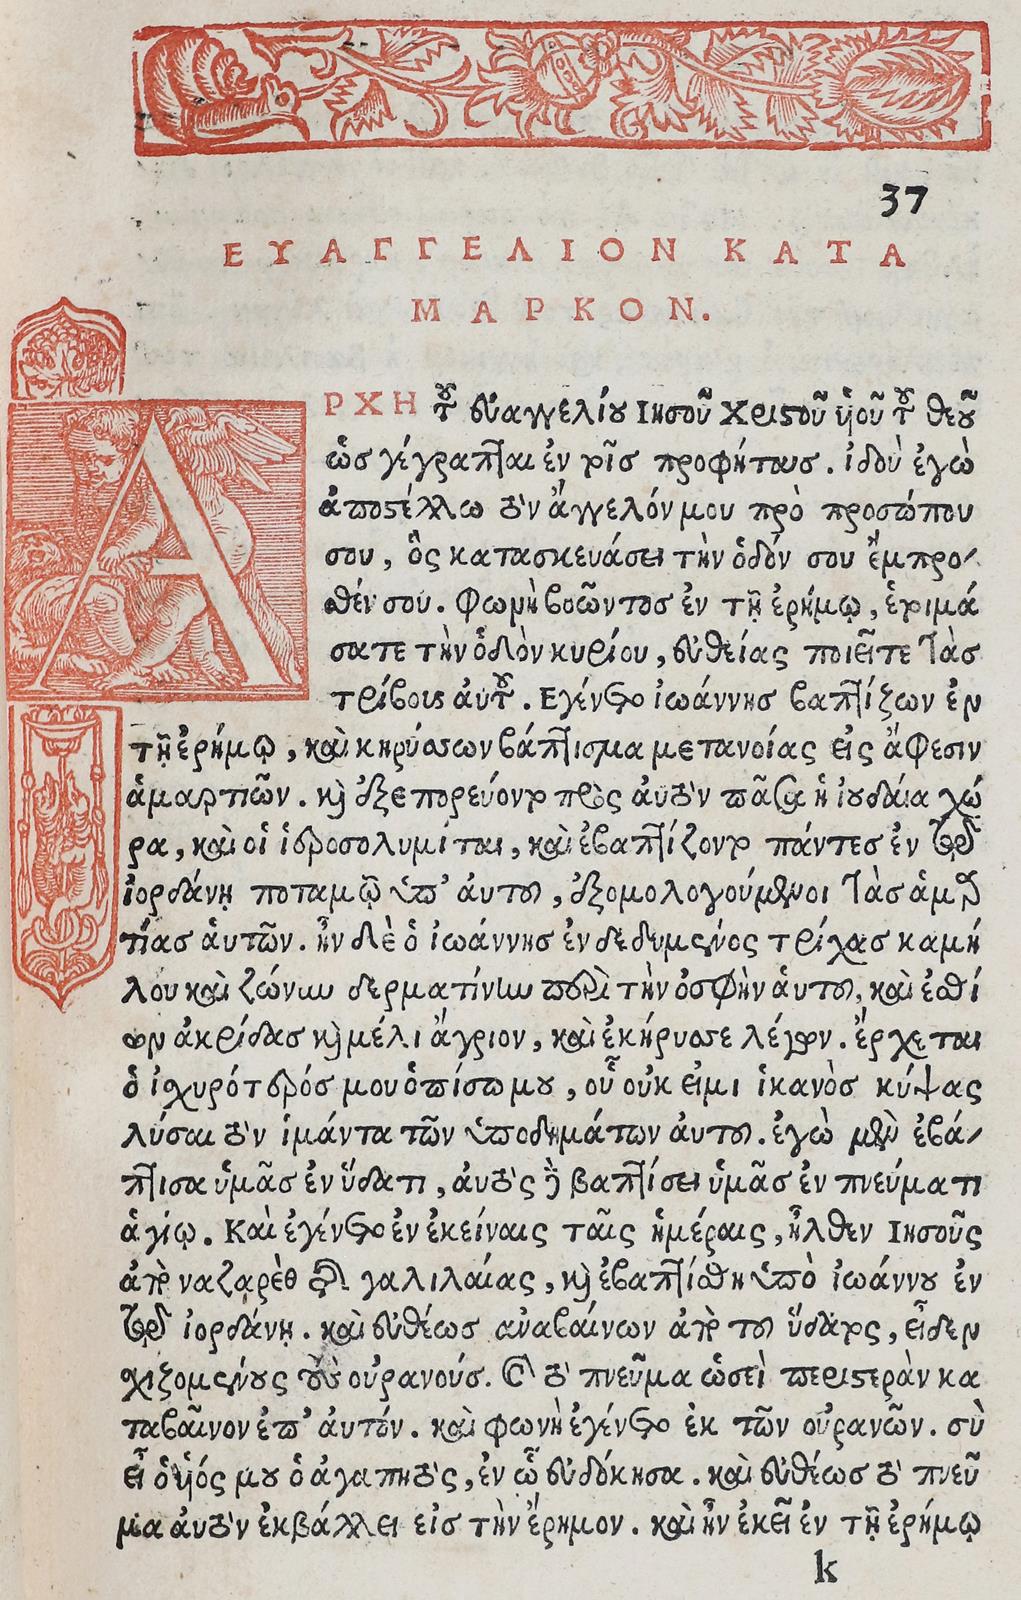 37
ΕΥΑΓΓΕΛΙΟΝ ΚΑΤΑ
ΜΑΡΚΟΝ.
ΑΡΧΗ τοῦ εὐαγγελίου Ιησοῦ Χριστοῦ ὑιοῦ τοῦ θεοῦ
ὡς γέγραπται ἐν τοῖς προφήταις. ἰδοὺ ἐγὼ
ἀποστέλλω τὸν ἄγγελόν μου πρὸ προσώπου
σου, ὃς κατασκευάσει τὴν ὁδόν σου ἔμπρο-
θέν σου. Φωνὴ βοῶντος ἐν τῇ ἐρήμῳ, ἑτοιμά
σατε τὴν ὁδὸν κυρίου, εὐθείας ποιεῖτε τὰς
τρίβους ἀυτοῦ. Εγένετο ἰωάννης βαπτίζων ἐν
τῇ ἐρήμῳ, καὶ κηρύσσων βάπτισμα μετανοίας εἰς ἄφεσιν
ἁμαρτιῶν. καὶ ἐξεπορεύοντο πρὸς ἀυτὸν πᾶσα ἡ ἰουδάια χώ
ρα, καὶ οἱ ἱεροσολυμίται, καὶ ἐβαπτίζοντο πάντες ἐν τῷ
ἰορδάνῃ ποταμῷ ὑπ' ἀυτοῦ, ἐξομολογούμενοι τὰς ἁμαρ
τίας ἁυτῶν. ἦν δὲ ὁ ἰωάννης ἐνδεδυμένος τρίχας καμή
λου καὶ ζώνην δερματίνην περὶ τὴν ὀσφὴν ἁυτοῦ, καὶ ἐσθί
ων ἀκρίδας καὶ μέλι ἄγριον, καὶ ἐκήρυσσε λέγων. ἔρχεται
ὁ ἰσχυρότερός μου ὀπίσω μου, οὗ οὐκ εἰμι ἱκανὸς κύψας
λύσαι τὸν ἱμάντα τῶν ὑποδημάτων ἀυτοῦ. ἐγὼ μὲν ἐβά-
πτισα ὑμᾶς ἐν ὕδατι, ἀυτὸς δὲ βαπτίσει ὑμᾶς ἐν πνεύματι
ἁγίῳ. Καὶ ἐγένετο ἐν ἐκείναις ταῖς ἡμέραις, ἦλθεν Ιησοῦς
ἀπὸ ναζαρὲθ τῆς γαλιλαίας, καὶ ἐβαπτίσθη ὑπὸ ἰωάννου ἐν
τῷ ἰορδάνῃ. καὶ εὐθέως ἀναβαίνων ἀπὸ τοῦ ὕδατος, εἶδεν
σχιζομένους τοὺς οὐρανούς. καὶ τὸ πνεῦμα ὡσεὶ περιστερὰν κα
ταβαῖνον ἐπ' ἀυτόν. καὶ φωνὴ ἐγένετο ἐκ τῶν οὐρανῶν. σὺ
εἶ ὁ ὑιός μου ὁ ἀγαπητὸς, ἐν ᾧ εὐδόκησα. καὶ εὐθέως τὸ πνεῦ
μα ἀυτὸν ἐκβάλλει εἰς τὴν ἔρημον. καὶ ἦν ἐκεῖ ἐν τῇ ἐρήμῳ
k